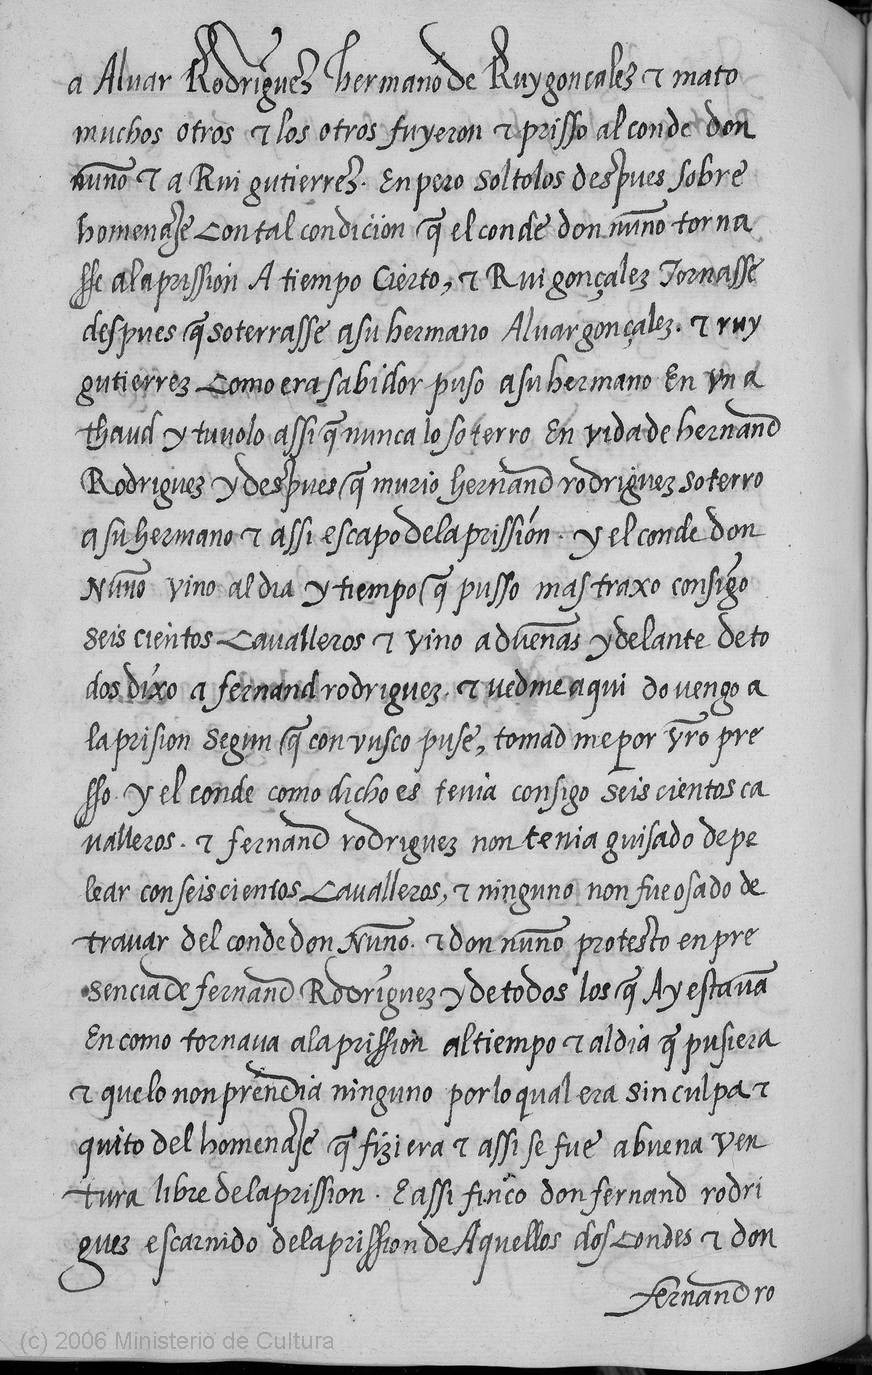 a Alvar Rodriguez hermano de Ruy gonçalez τ mato
muchos otros τ los otros fuyeron τ prisso al conde don
nuño τ a Rui gutierrez. En pero soltolos despues sobre
homenaje Con tal condicion q̃ el conde don nuño torna
sse ala prission A tiempo Cierto, τ Rui gonçalez Tornasse
despues q̃ soterrasse a su hermano Alvar gonçalez. τ ruy
gutierrez Como era sabidor puso a su hermano En vn a
thaud y tuuolo assi q̃ nunca lo soterro En vida de hernand
Rodriguez y despues q̃ murio hernand rodriguez soterro
a su hermano τ assi escapo dela prissión. y el conde don
Nuño vino al dia y tiempo q̃ pusso mas traxo consigo
seis cientos Cavalleros τ vino a dueñas y delante de to
dos dixo a fernand rodriguez. τ vedme aqui do vengo a
la prision segun q̃ con vusco puse, tomad me por vr̃o pre
sso y el conde como dicho es tenia consigo seis cientos ca
valleros. τ fernand rodriguez non tenia guisado de pe
lear con seiscientos Cavalleros, τ ninguno non fue osado de
travar del conde don Nuño. τ don nuño protesto en pre
sencia de fernand Rodriguez y de todos los q̃ Ay estavã
En como tornava ala prission al tiempo τ al dia q̃ pusiera
τ que lo non prendia ninguno por lo qual era sin culpa τ
quito del homenaje q̃ fiziera τ assi se fue a buena ven
tura libre dela prission. E assi finco don fernand rodri
guez escarnido dela prission de Aquellos dos Condes τ don
fernand ro
(c) 2006 Ministerio de Cultura